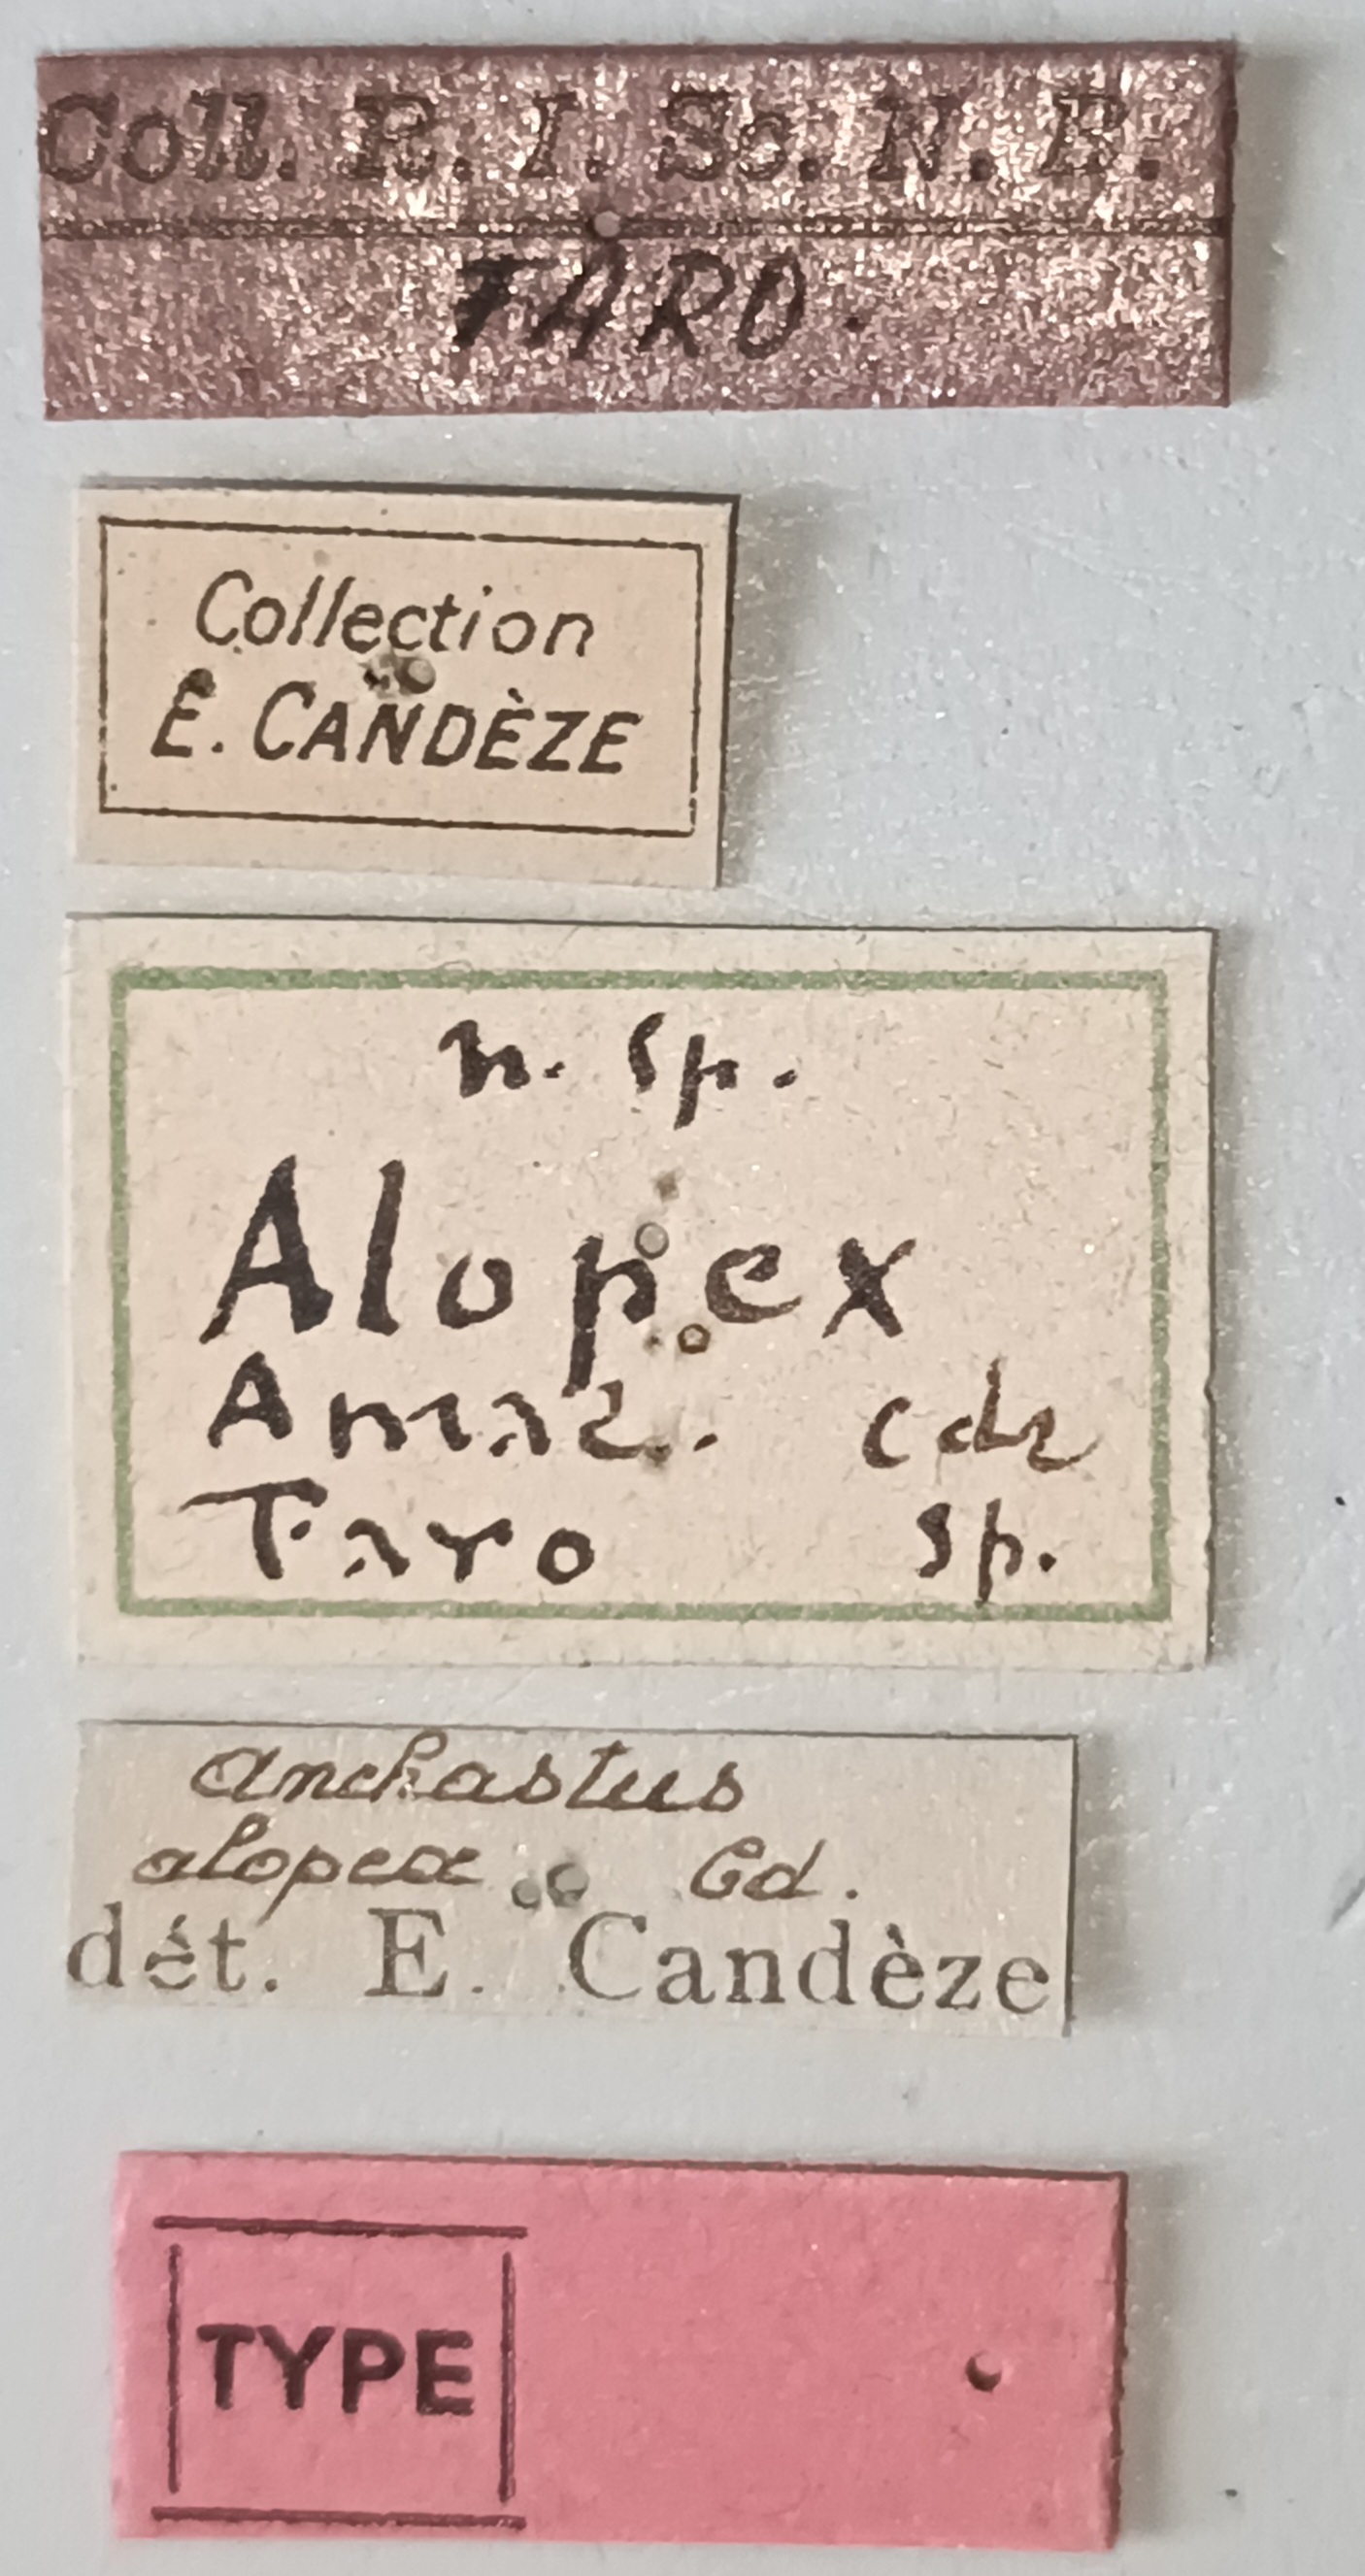 Coll. R. I. Sc. N. B.
TARO.
Collection
E. CANDÈZE
n. sp.
Alopex
Amaz. cdz
Taro sp.
Anchastus
alopex Cd.
dét. E. Candèze
TYPE